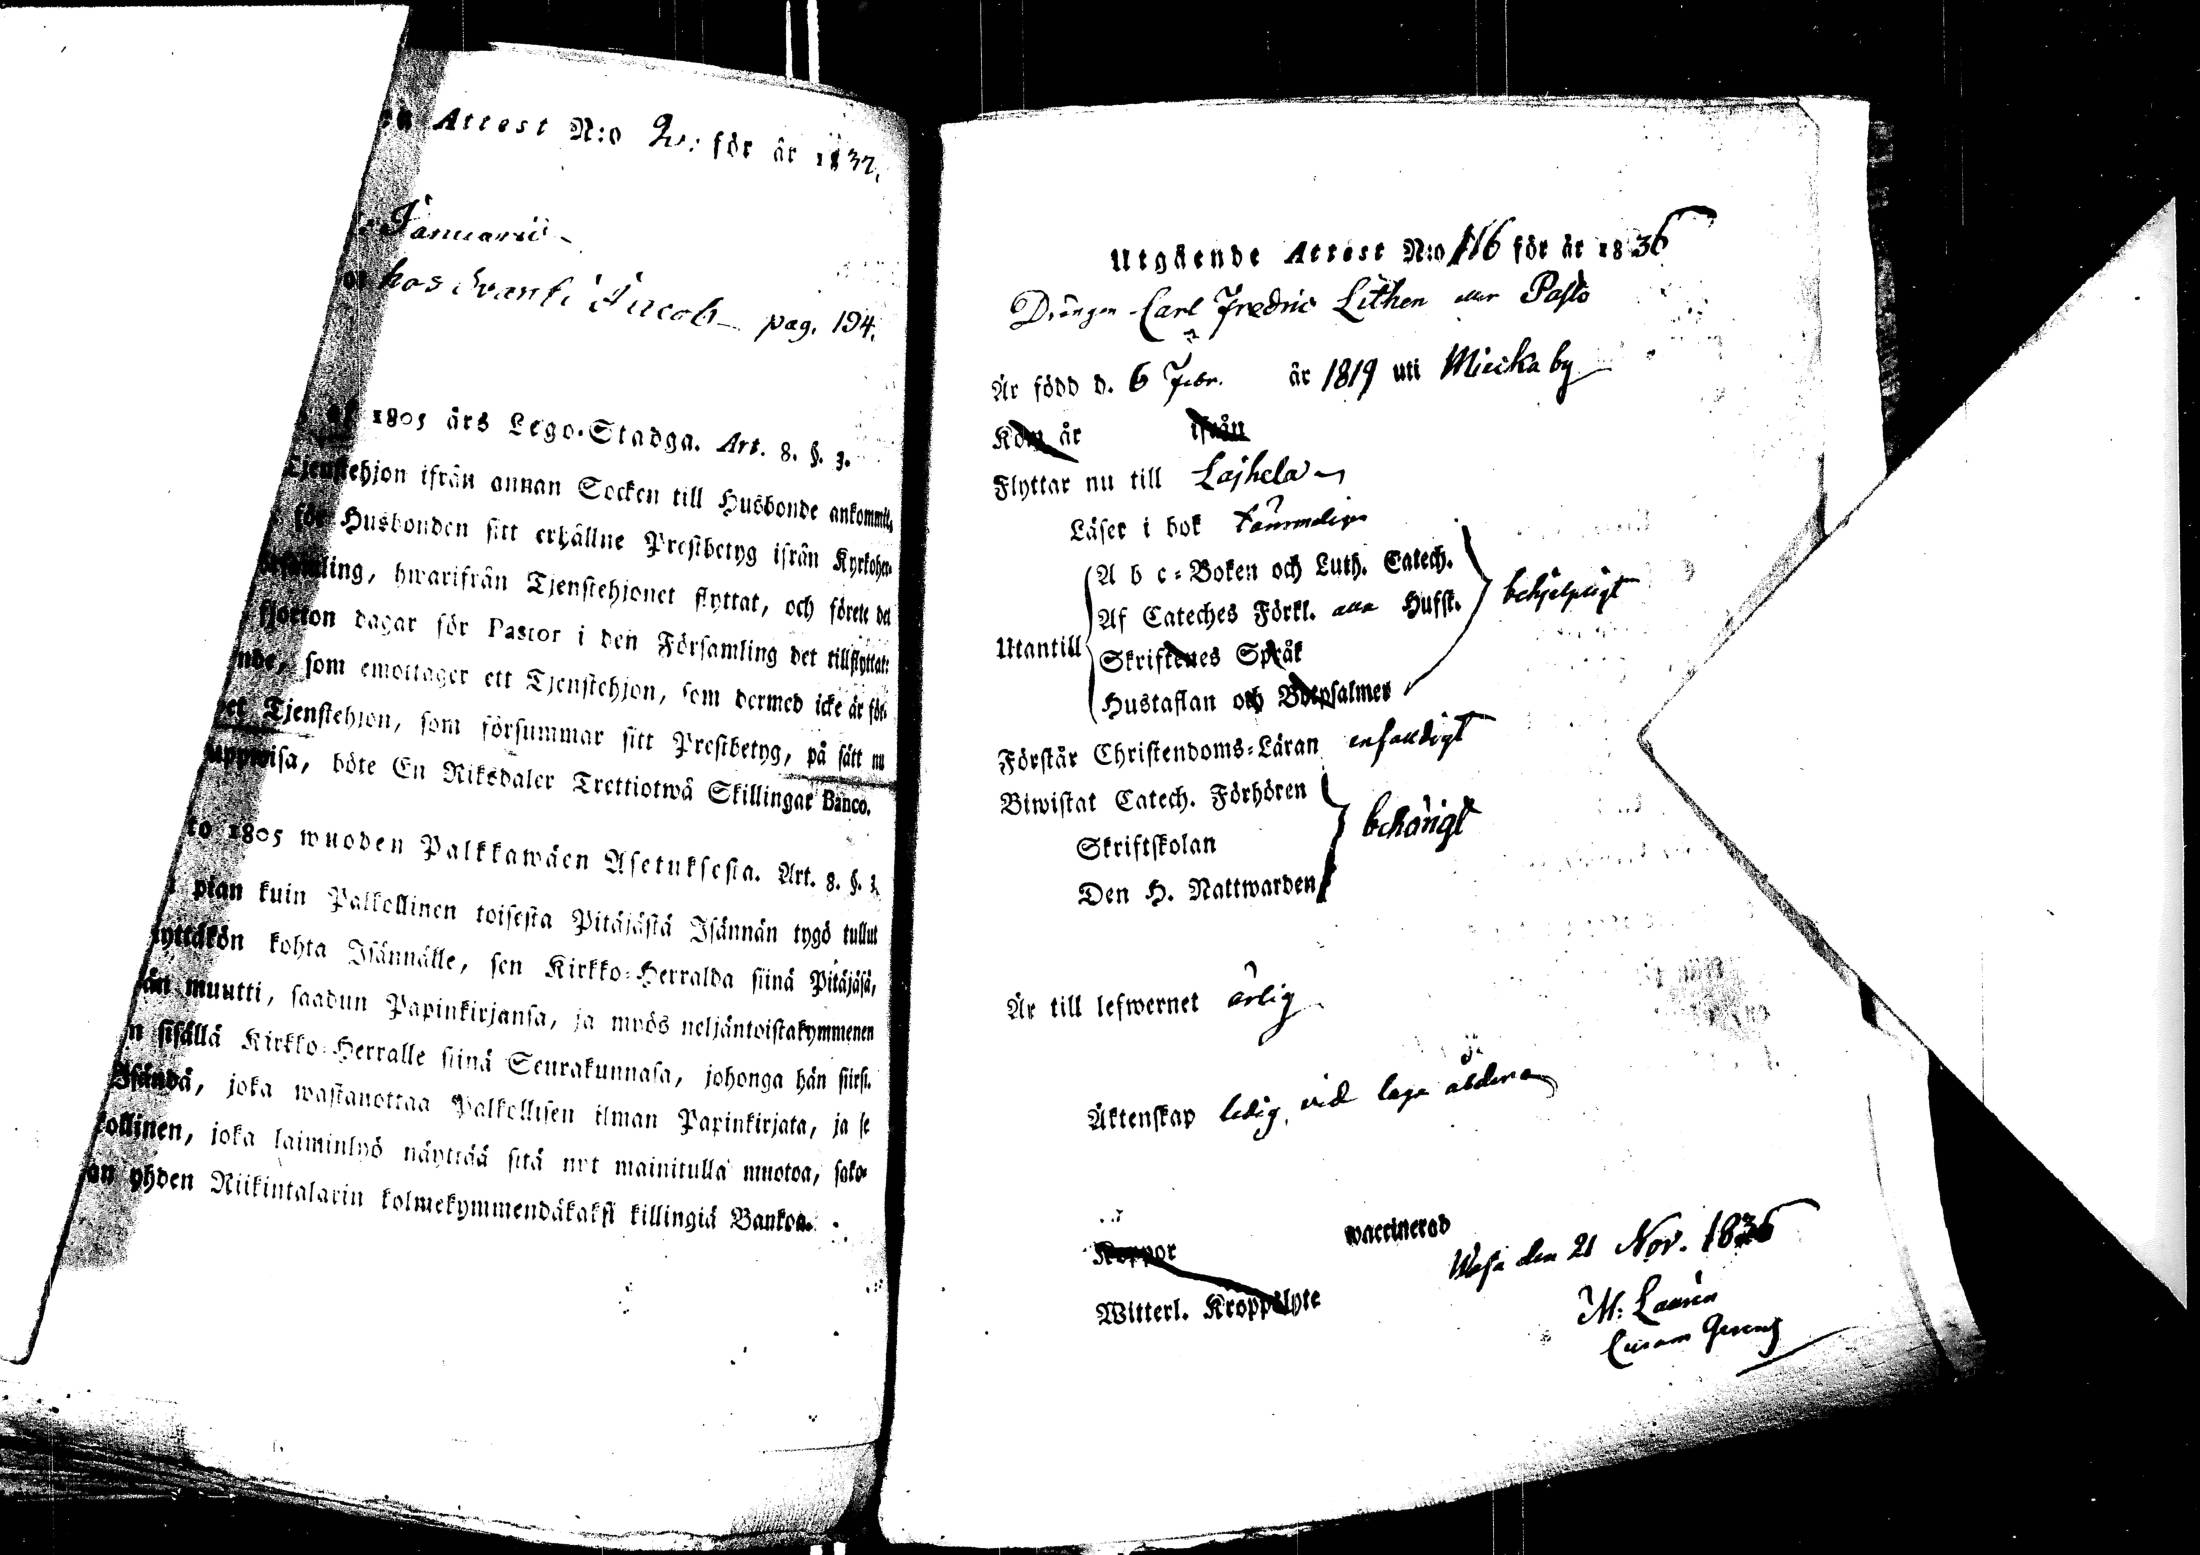 Attest N:o 2: för år 1837.
Januarii
hos Svanti Jacob pag. 194.
af 1805 års Lego-Stadga. Art. 8. §. 3.
Tjenstehjon ifrån annan Socken till Husbonde ankommit,
för Husbonden sitt erhållne Prestbetyg ifrån Kyrkoher-
ling, hwarifrån Tjenstehjonet flyttat, och förete det
fjorton dagar för Pastor i den Församling det tillflyttat:
nde, som emottager ett Tjenstehjon, som dermed icke är för-
et Tjenstehjon, som försummar sitt Prestbetyg, på sätt nu
uppwisa, böte En Riksdaler Trettiotwå Skillingar Banco.
to 1805 wuoden Palkkawäen Asetuksesta. Art. 8. §. 3.
pian kuin Palkollinen toisesta Pitäjästä Isännän tygö tullut
yttäkön kohta Isännälle, sen Kirkko-Herralda siinä Pitäjäsä,
än muutti, saadun Papinkirjansa, ja myös neljäntoistakymmenen
n sisällä Kirkko-Herralle siinä Seurakunnasa, johonga hän siirsi.
Isändä, joka wastanottaa Palkollisen ilman Papinkirjata, ja se
kollinen, joka laiminlyö näyttää sitä nyt mainitulla muotoa, sako-
an yhden Riikintalarin kolmekymmendäkaksi killingiä Bankoa.
Utgående Attest N:o 116 för år 1836
Drängen Carl Fredric Lithen eller Pasto
Är född d. 6 Febr. år 1819 uti Miekka by
Kom år ifrån
Flyttar nu till Lajhela
Läser i bok
A b c-Boken och Luth. Catech.
Af Cateches Förkl. alla Hufst.
behjelpligt
Utantill
Skriftenes Språk
Hustaflan och Botpsalmer
Förstår Christendoms-Läran enfaldigt
Biwistat Catech. Förhören
behörigt
Skriftskolan
Den H. Nattwarden
Är till lefwernet ärlig
Äktenskap ledig, vid laga ålder
Koppor waccinerad
Wasa den 21 Nov. 1836
Witterl. Kroppslyte
M: Laurén